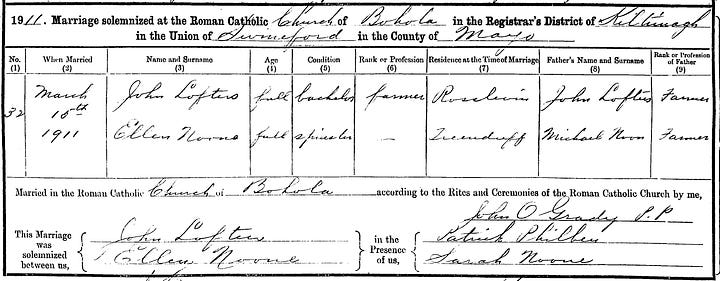 1911. Marriage solemnized at the Roman Catholic Church of Bohola in the Registrar's District of Kiltimagh
in the Union of Swineford in the County of Mayo
No. When Married Name and Surname Age Condition Rank or Profession Residence at the Time of Marriage Father's Name and Surname Rank or Profession of Father
(1) (2) (3) (4) (5) (6) (7) (8) (9)
32 March 10th 1911
John Loftus full bachelor farmer John Loftus Farmer
Ellen Noone full spinster — Michael Noon Farmer
Married in the Roman Catholic Church of Bohola according to the Rites and Ceremonies of the Roman Catholic Church by me,
John O Grady P.P
This Marriage was solemnized between us,
John Loftus
Ellen Noone
in the Presence of us,
Patrick Philben
Sarah Noone